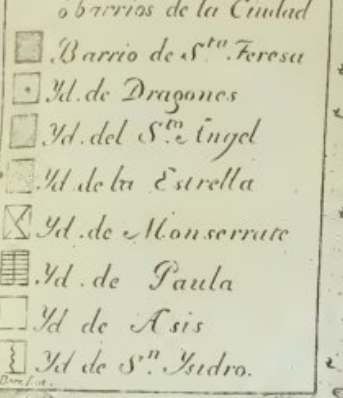 ó barrios de la Ciudad
Barrio de S.ta Teresa
Yd. de Dragones
Yd. del S.to Angel
Yd. de la Estrella
Yd. de Monserrate
Yd. de Paula
Yd de Asis
Yd de S.n Ysidro.